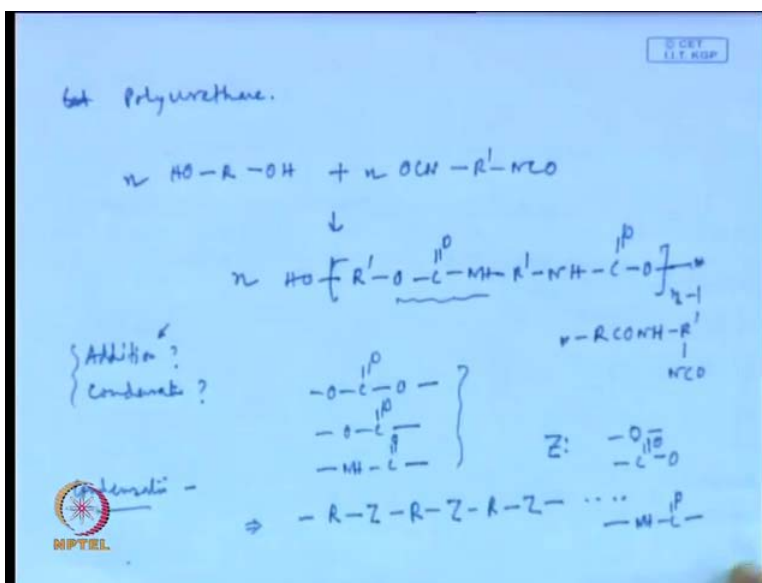 © CET
I.I.T. KGP
Polyurethane.
n HO-R-OH + n OCN-R'-NCO
↓
n HO-[R'-O-C(=O)-NH-R'-NH-C(=O)-O-]n-1
-RCONH-R'
|
NCO
Addition?
Condensat ?
-O-C(=O)-O-
-O-C(=O)-
-NH-C(=O)-
Z: -O-
-C(=O)-O
Condensatio -
⇒ -R-Z-R-Z-R-Z- ....
-NH-C(=O)-
NPTEL